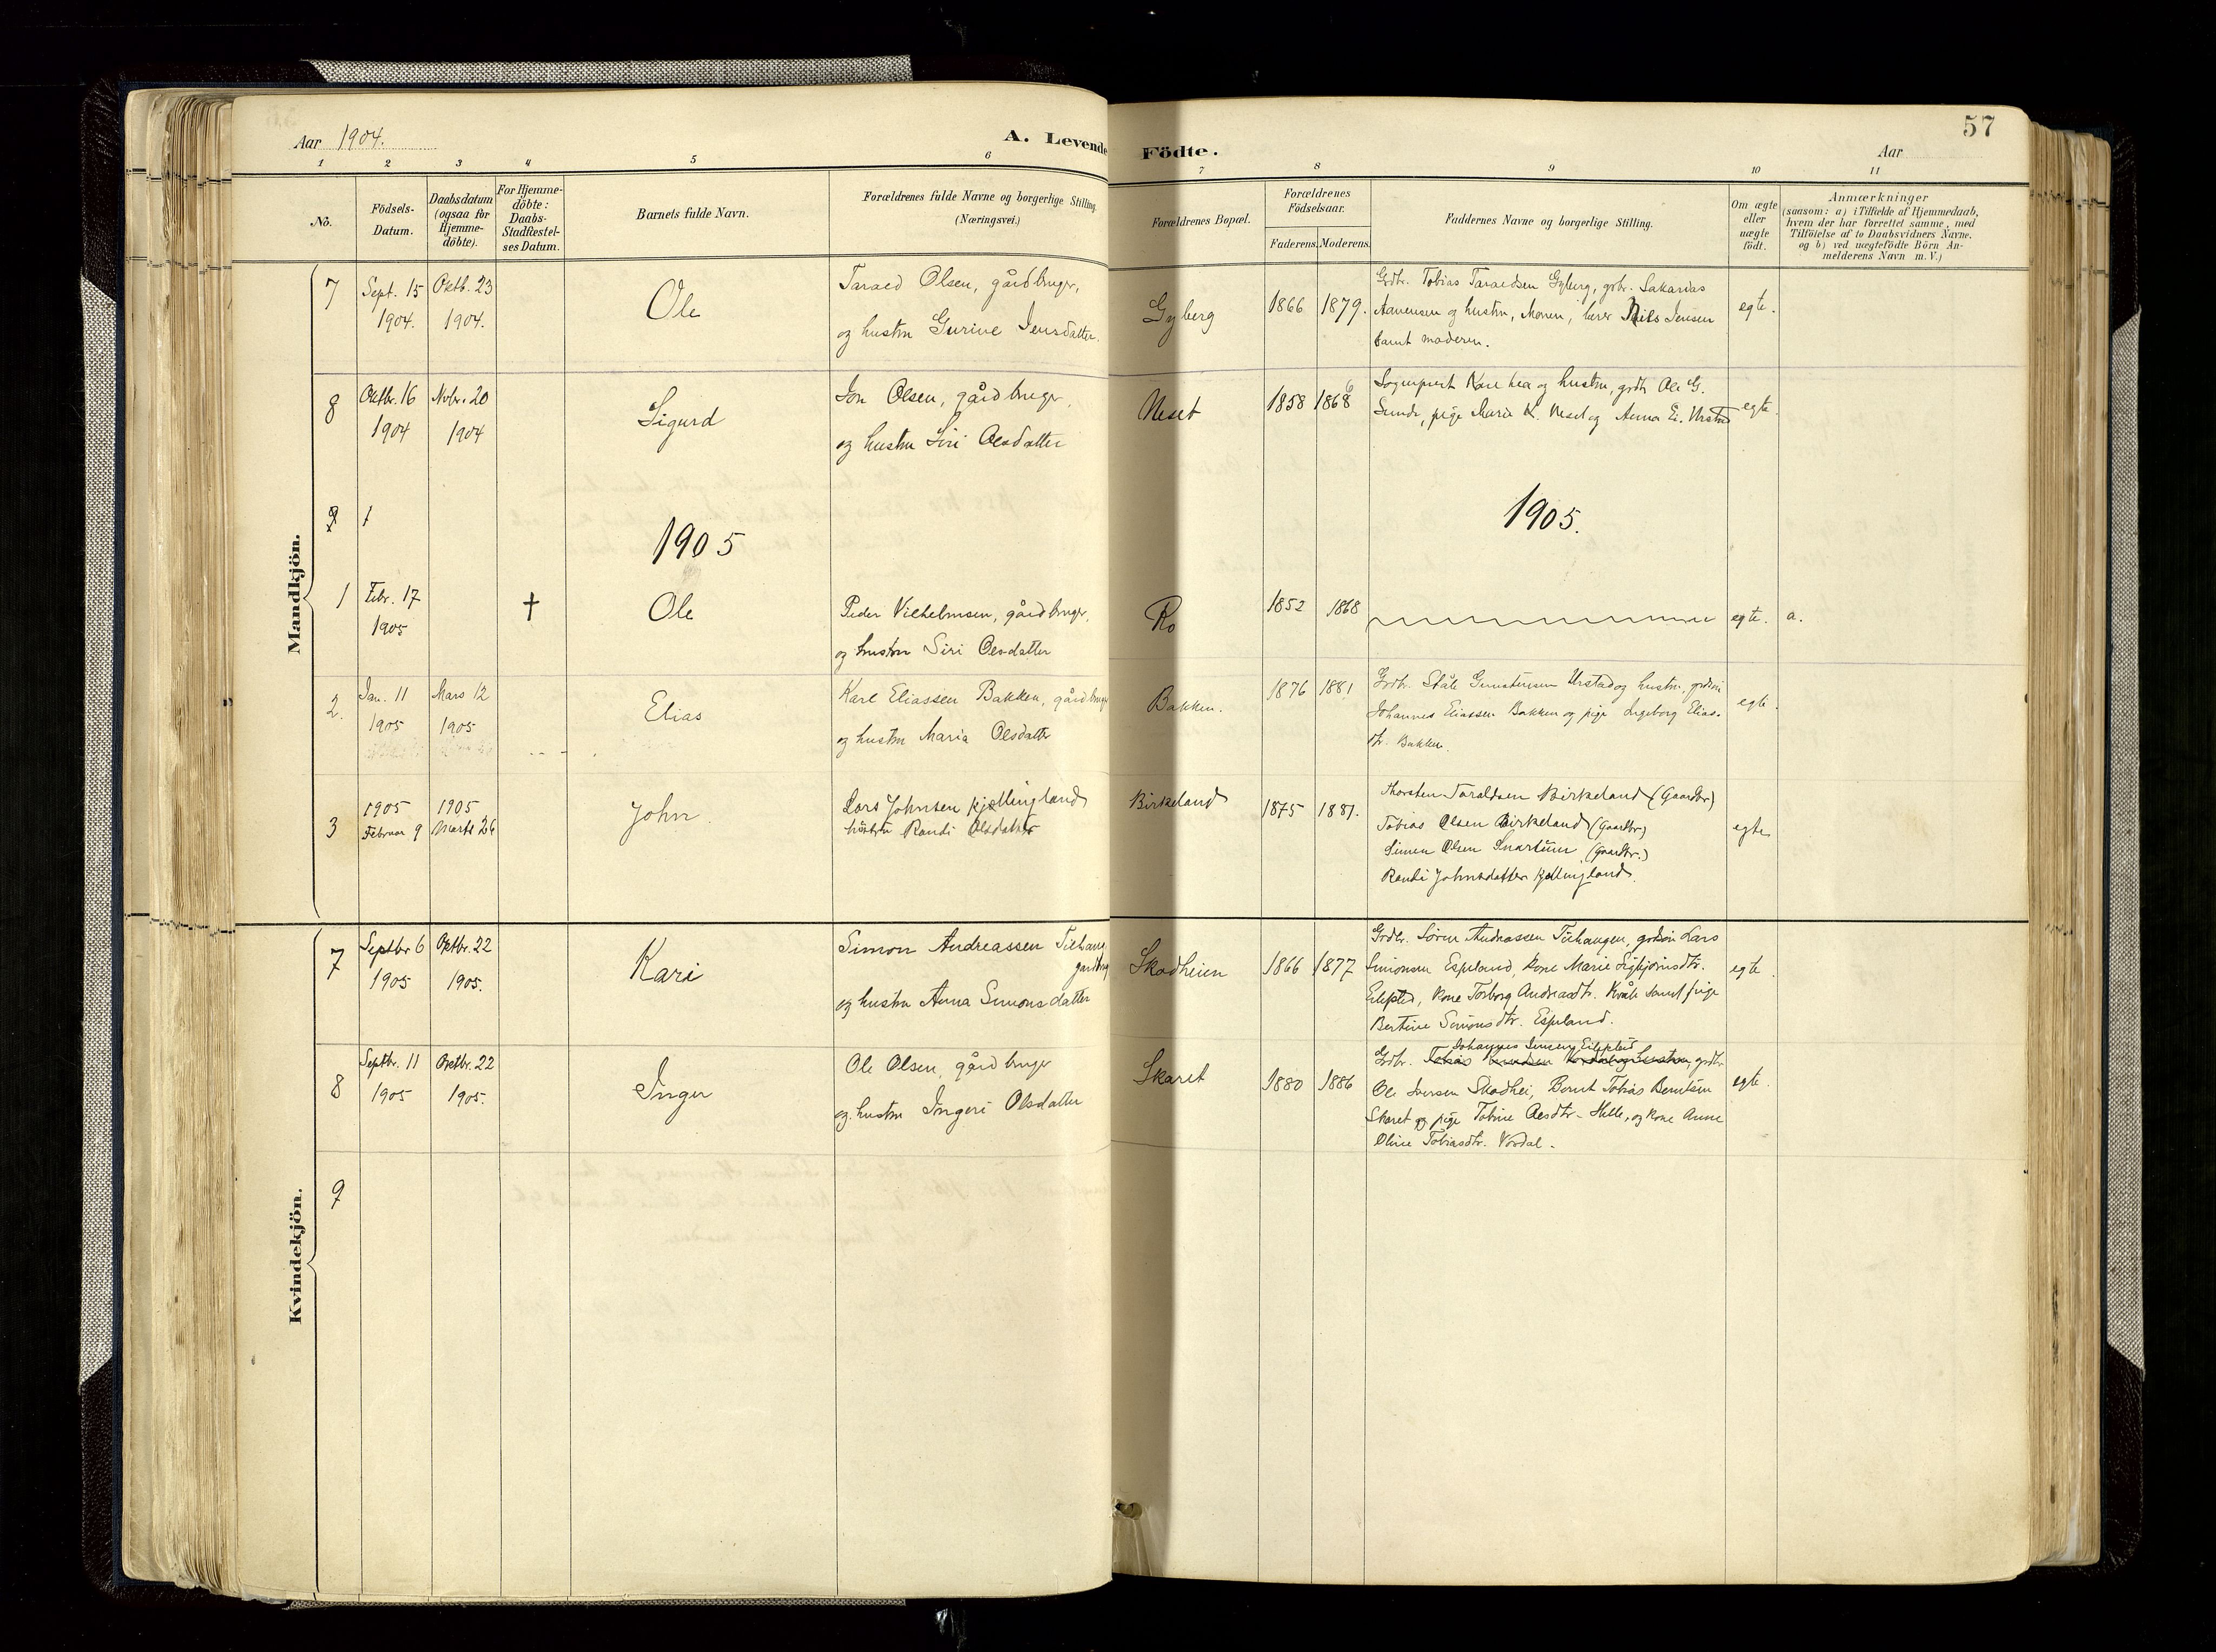 57
Aar 1904.
A. Levende Födte.
Aar
1 2 3 4 5 6 7 8 9 10 11
No.
Födsels-
Datum.
Daabsdatum
(ogsaa for
Hjemme-
döbte).
For Hjemme-
döbte:
Daabs-
Stadfestel-
ses Datum.
Barnets fulde Navn.
Forældrenes fulde Navne og borgerlige Stilling
(Næringsvei.)
Forældrenes Bopæl.
Forældrenes
Födselsaar.
Faderens. Moderens.
Faddernes Navne og borgerlige Stilling.
Om ægte
eller
uægte
födt.
Anmærkninger
(saasom: a) i Tilfælde af Hjemmedaab,
hvem der har forrettet samme, med
Tilföielse af to Daabsvidners Navne.
og b) ved uægtefödte Börn An-
melderens Navn m. V.)
Mandkjön.
7
Sept. 15
1904.
Oktb. 23
1904.
Ole
Tarald Olsen, gårdbruger,
og hustru Gurine Jensdatter.
Gyberg
1866 1879.
Grdbr. Tobias Taraldsen Gyberg, grbr. Sakarias
Aanensen og hustru, Monen, lærer Niels Jensen
samt moderen.
egte.
8
Oktbr. 16
1904
Novbr. 20
1904
Sigurd
Jon Olsen, gårdbruger,
og hustru Siri Olsdatter
Neset
1858 1868 6
Sogneprest og hustru, grdbr Ole G.
Sunde, pige Maria K. Neset og Anna E. Urstad
egte.
9 1
1905
1905.
1
Febr. 17
1905
†
Ole
Peder Vilhelmsen, gårdbruger,
og hustru Siri Olsdatter
Ro
1852 1868
egte. a.
2.
Jan. 11
1905
Mars 12
1905
Elias
Karl Eliassen Bakken, gårdbruger
og hustru Maria Olsdatter
Bakken.
1876 1881
Grdbr. Ståle Gunstensen Urstad og hustru, grdsøn
Johannes Eliassen Bakken og pige Ingeborg Elias-
dtr. Bakken.
egte.
3
1905
Februar 9
1905
Marts 26
John.
Lars Johnsen Kjellingland
hustru Randi Olsdatter
Birkeland
1875 1881.
Thorsten Taraldsen Birkeland (Gaardbr)
Tobias Olsen Birkeland (Gaardbr)
Simen Olsen Snartum (Gaardbr.)
Randi Johnsdatter Kjellingland.
egte
Kvindekjön.
7
Septbr 6
1905
Oktbr. 22
1905.
Kari
Simon Andreassen
gårdbrug
og hustru Anna Simonsdatter
Skodheien
1866 1877
Grdbr. Søren Andreassen grdsøn Lars
Simonsen Espeland, kone Marie Sigbjørnsdtr.
Eilepsted, kone Torborg Andreasdtr. Kvåle samt pige
Bertine Simonsdtr. Espeland.
egte.
8
Septbr. 11
1905
Oktbr. 22
1905.
Inger
Ole Olsen, gårdbruger
og hustru Ingeri Olsdatter
Skaret
1880 1886
Johannes Jensen Eilepsted
Grdbr. Tobias og hustru, grdbr.
Ole Iversen Skodhei, Bernt Tobias Berntsen
Skaret og pige Tobine Olsdtr. Helle, og kone Anne
Oline Tobiasdtr. Vordal.
egte.
9